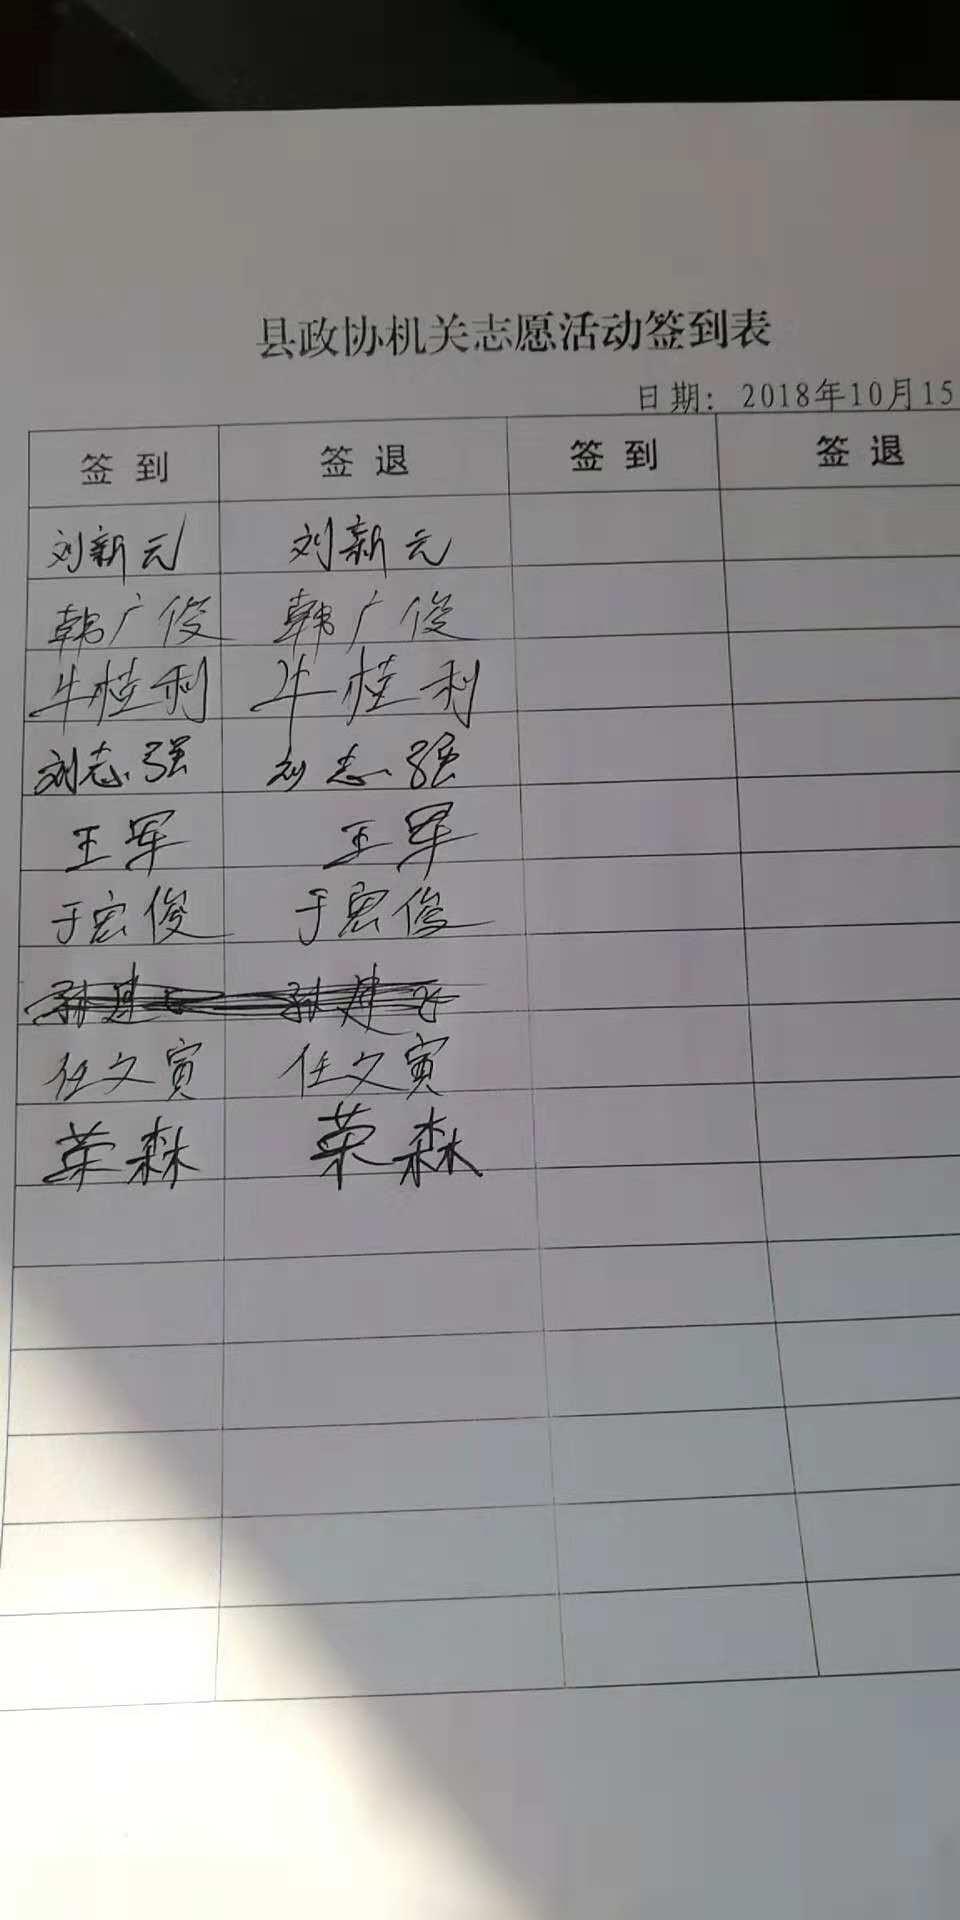 县政协机关志愿活动签到表
日期：2018年10月15
签到 签退 签到 签退
刘新元 刘新元
韩广俊 韩广俊
牛桂利 牛桂利
刘志强 刘志强
王军 王军
于宏俊 于宏俊
任文寅 任文寅
荣森 荣森